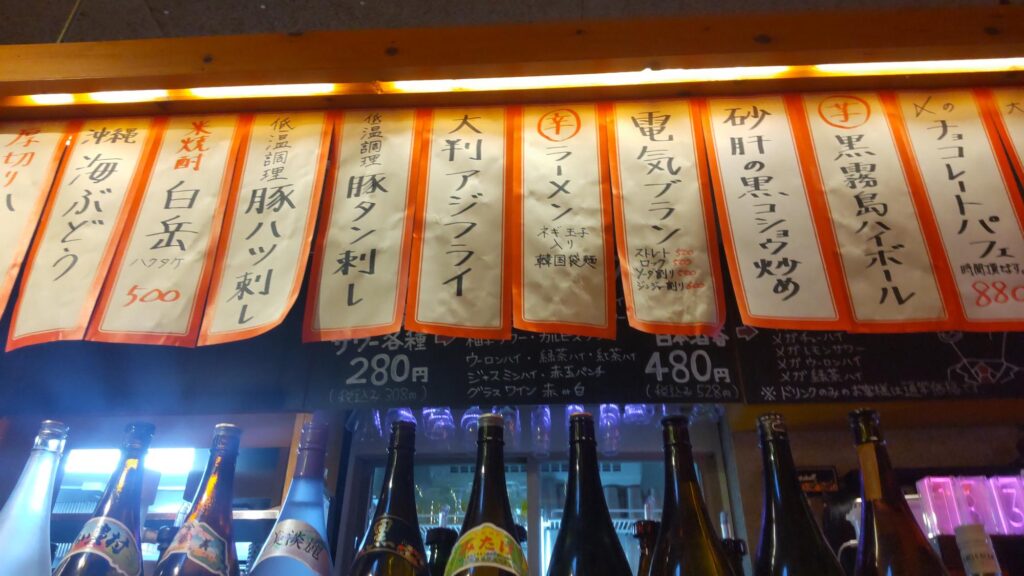 厚切り
沖縄
海ぶどう
米焼酎
白岳
ハクタケ
500
低温調理
豚ハツ刺し
低温調理
豚タン刺し
大判アジフライ
辛
ラーメン
ネギ玉子
入り
韓国袋麺
電気ブラン
ストレート 500
ロック 500
ソーダ割り 500
ジンジャー割り 600
砂肝の黒コショウ炒め
芋
黒霧島ハイボール
〆の
チョコレートパフェ
時間頂きます
880
大
サワー各種
280円
(税込み308円)
柚子サワー・カルピスサワー
ウーロンハイ・緑茶ハイ・紅茶ハイ
ジャスミンハイ・赤玉パンチ
グラスワイン 赤 or 白
日本酒各
480円
(税込み528円)
メガチューハイ
メガレモンサワー
メガハイボール
メガ緑茶ハイ
※ドリンクのみのお客様は